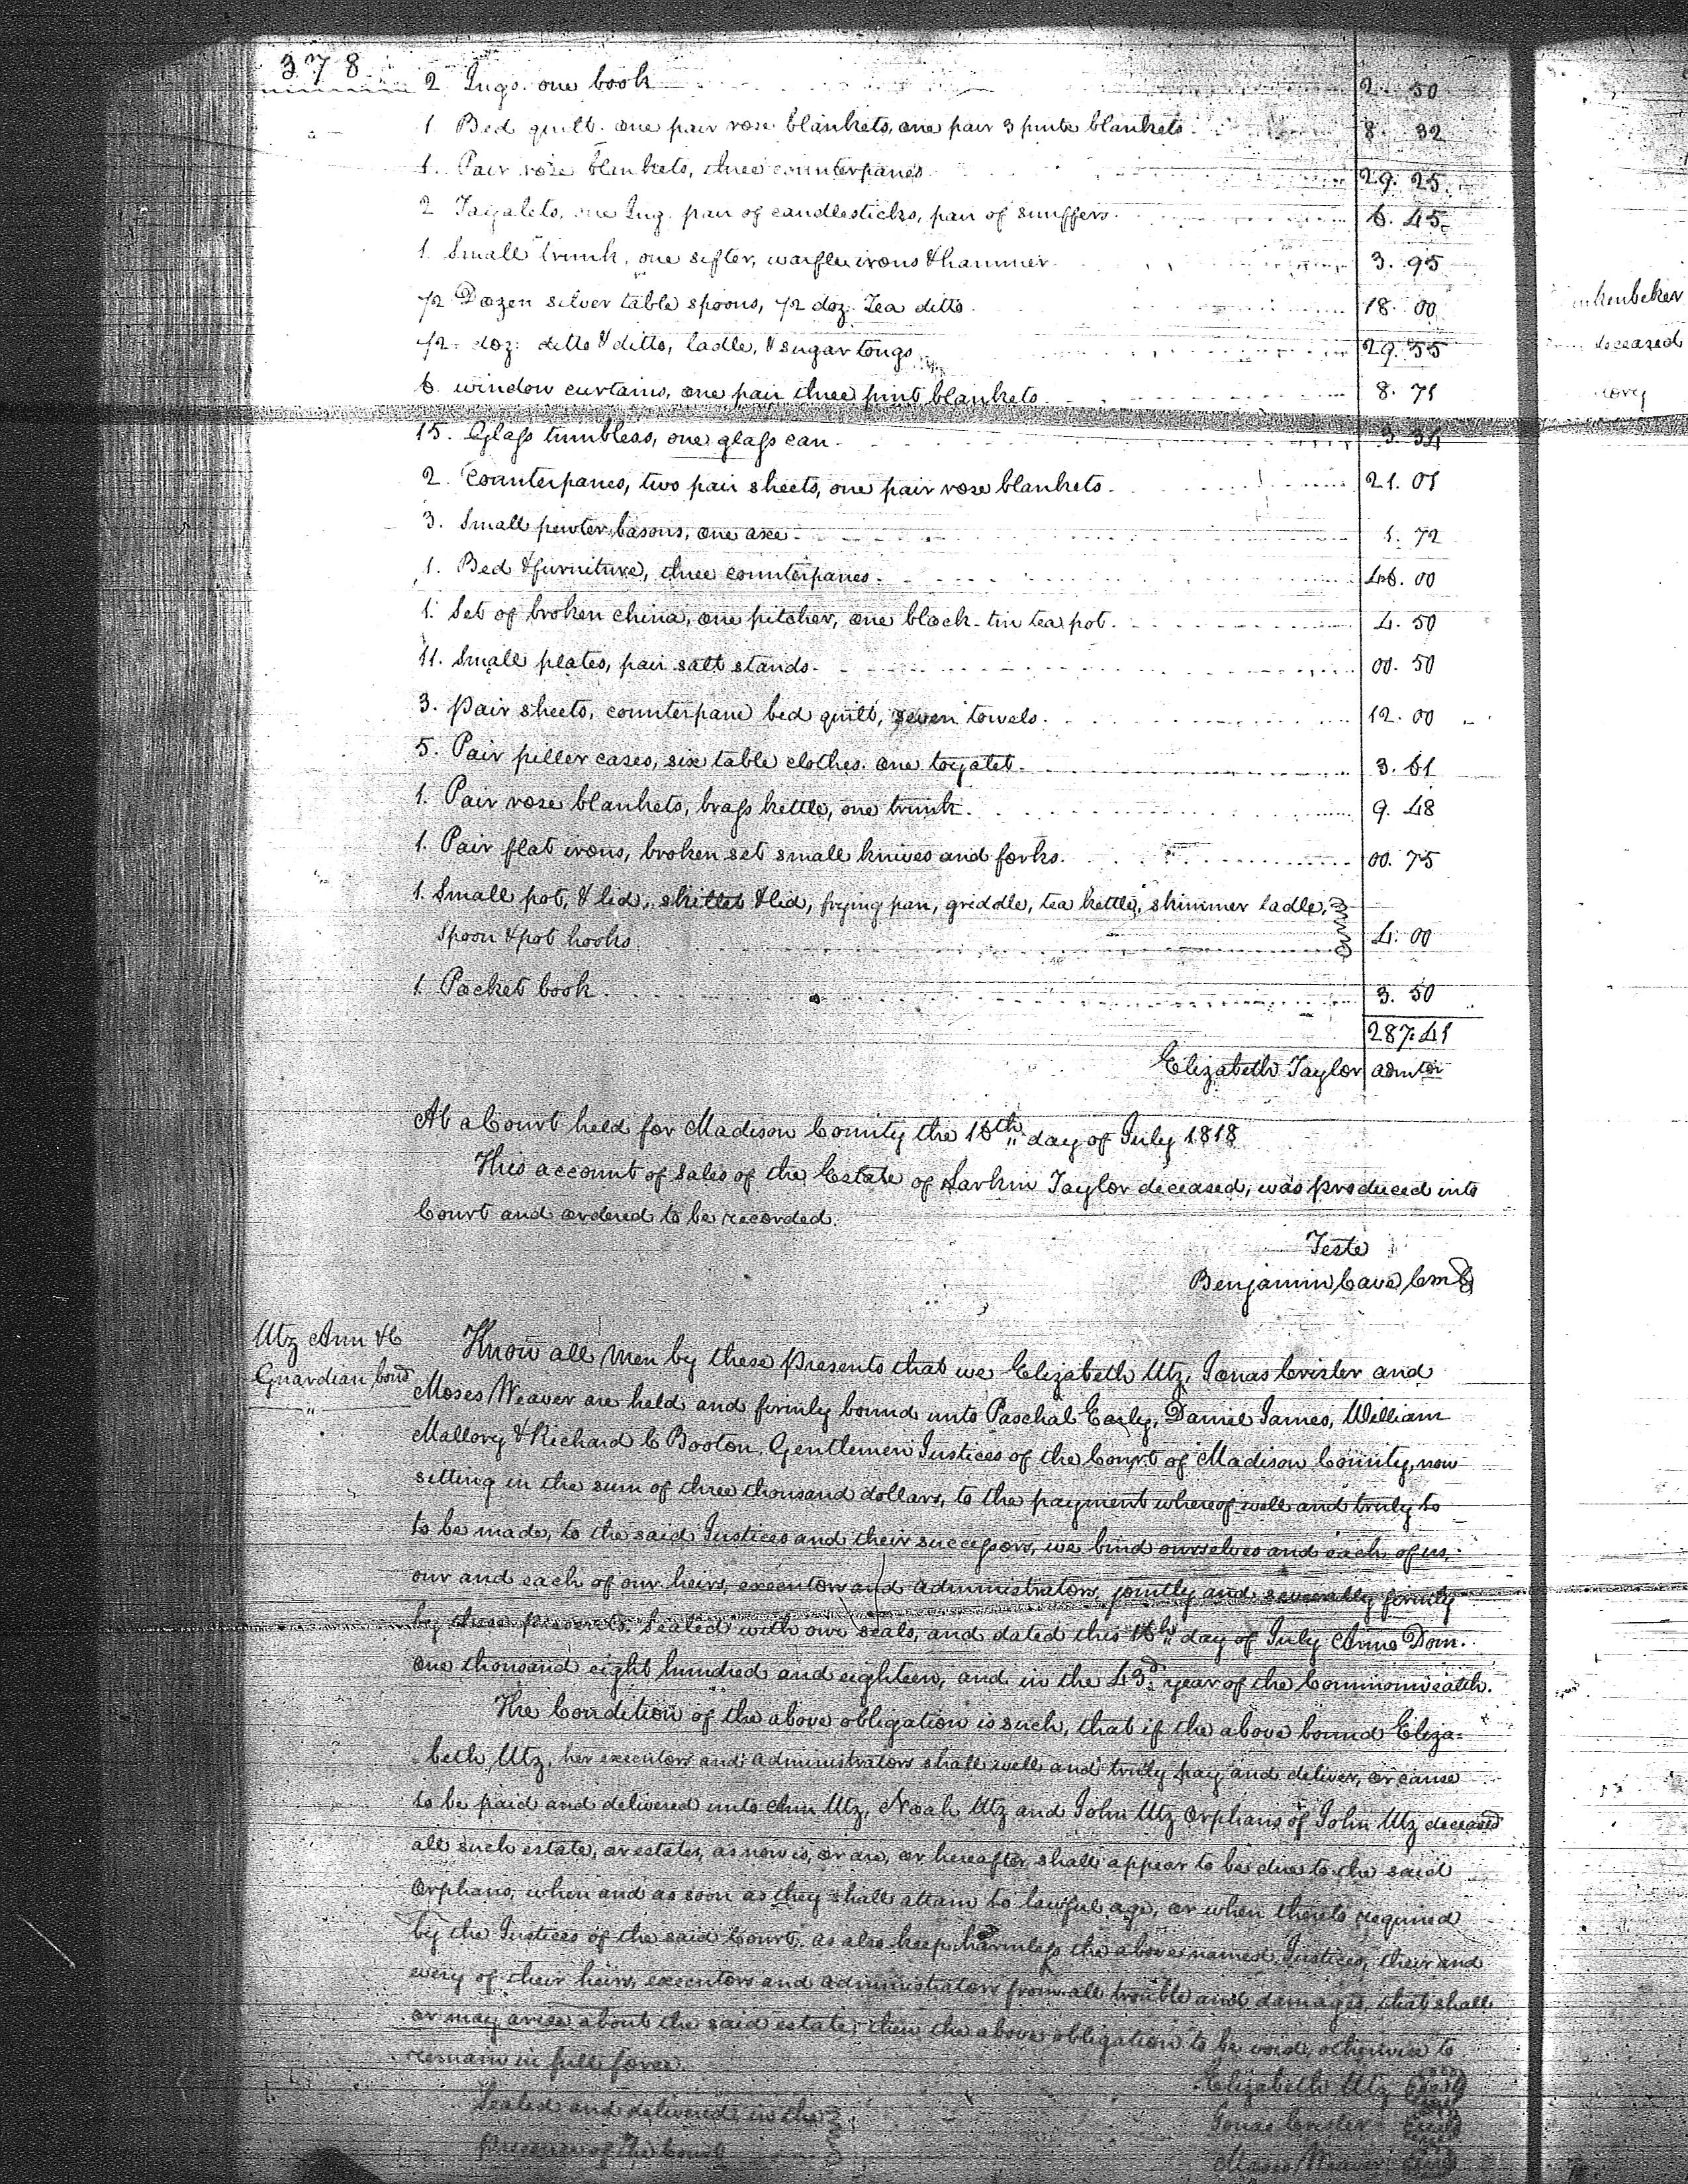 378
2 Jugs. one book 2. 50
1 Bed quilt. one pair rose blankets, one pair 3 pint blankets 8. 32
1. Pair rose blankets, three counterpanes 29. 25.
2 Toyalets, one Jug. pair of candlesticks, pair of snuffers. 6. 45
1. Small trunk, one sifter, waifle irons & hammer 3. 95
1/2 Dozen silver table spoons, 1/2 doz. Tea ditto 18. 00
1/2 doz: ditto & ditto, ladle, & sugar tongs 29. 55
6. window curtains, one pair three pint blankets. 8. 71
15. Glass tumblers, one glass can 3. 34
2 Counterpanes, two pair sheets, one pair rose blankets. 21. 01
3. Small pewter basons, one axe 1. 72
1. Bed & furniture, three counterpanes. 46. 00
1. Set of broken china, one pitcher, one block-tin tea pot. 4. 50
11. Small plates, pair salt stands. 00. 50
3. Pair sheets, counterpane bed quilt, seven towels. 12. 00
5. Pair piller cases, six table clothes. one toyalet. 3. 61
1. Pair rose blankets, brass kettle, one trunk. 9. 48
1. Pair flat irons, broken set small knives and forks. 00. 75
1. Small pot, & lid, skillet & lid, frying pan, griddle, tea kettle, skimmer ladle,
Spoon & pot hooks. 4. 00
1. Pocket book. 3. 50
287. 41
Elizabeth Taylor admtor
At a Court held for Madison County the 16th day of July 1818
This account of sales of the Estate of Larkin Taylor deceased, was produced into
Court and ordered to be recorded.
Teste
Benjamin Cave CMC
Utz Ann &C
Guardian bond
Know all Men by these Presents that we Elizabeth Utz, Jonas Crisler and
Moses Weaver are held and firmly bound unto Paschal Early, Daniel James, William
Mallory & Richard C Booton. Gentlemen Justices of the Court of Madison County, now
sitting in the sum of three thousand dollars, to the payment whereof well and truly to
to be made, to the said Justices and their successors, we bind ourselves and each of us,
our and each of our heirs, executors and administrators, jointly and severally firmly
by these presents. Sealed with our seals, and dated this 16th day of July Anno Dom.
one thousand eight hundred and eighteen, and in the 43d year of the Commonwealth.
The Condition of the above obligation is such, that if the above bound Eliza-
-beth Utz, her executors and administrators shall well and truly pay and deliver, or cause
to be paid and delivered unto Ann Utz, Noah Utz and John Utz Orphans of John Utz deceased
all such estate, or estates, as now is, or are, or hereafter shall appear to be due to the said
Orphans, when and as soon as they shall attain to lawful age, or when thereto required
by the Justices of the said Court, as also keep harmless the above named Justices, their and
every of their heirs, executors and administrators from all trouble and damages, that shall
or may arise about the said estate, then the above obligation to be void, otherwise to
remain in full force.
Sealed and delivered in the
presence of The Court
Elizabeth Utz Seal
Jonas Crisler Seal
Moses Weaver Seal
deceased